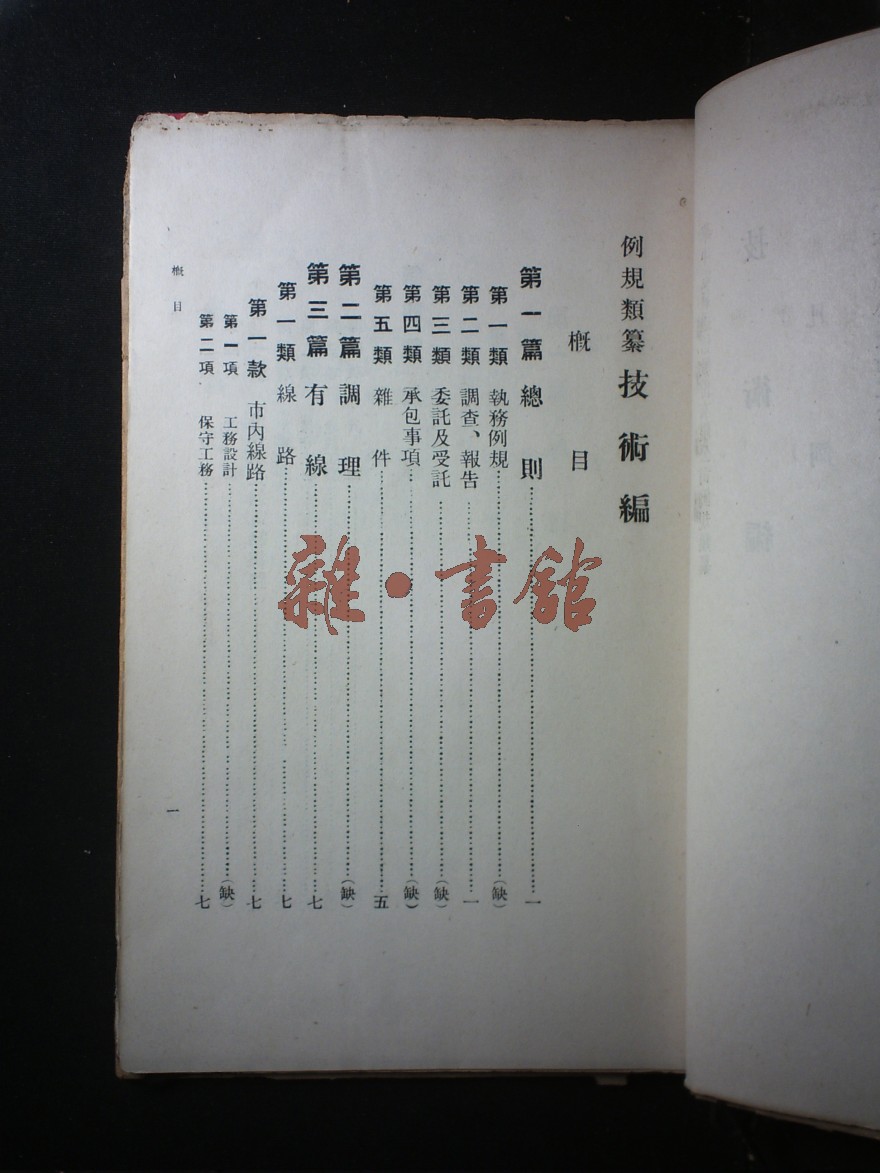 例規類纂 技術編
概目
第一篇 總則……一
第一類 執務例規……(缺)
第二類 調查、報告……一
第三類 委託及受託……(缺)
第四類 承包事項……(缺)
第五類 雜件……五
第二篇 調理……(缺)
第三篇 有線……七
第一類 線路……七
第一款 市內線路……七
第一項 工務設計……(缺)
第二項 保守工務……七
概目
一
雜·書館